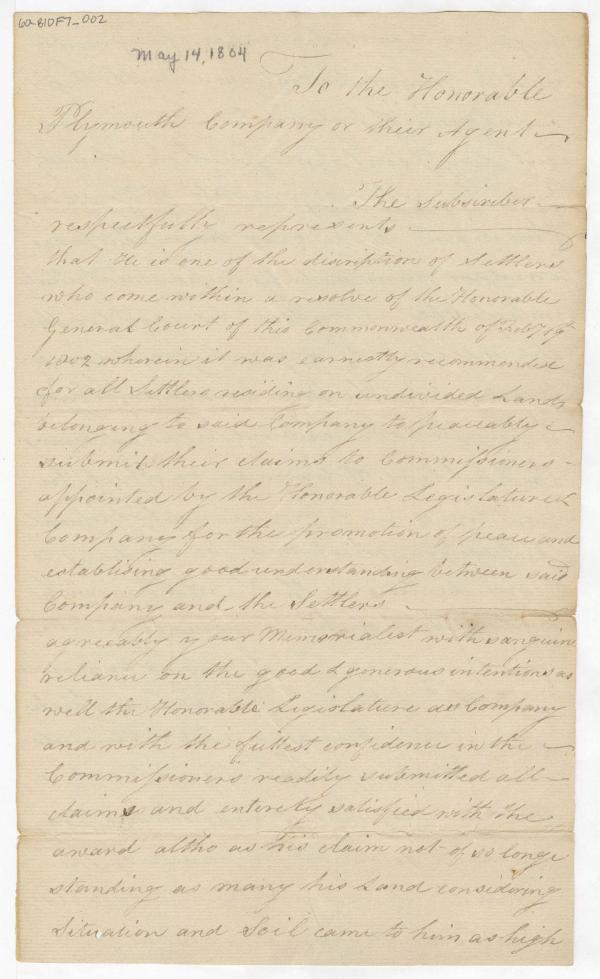 60-B10F7_002
May 14, 1804
To the Honorable
Plymouth Company or their Agent
The Subscriber
respectfully represents
that He is one of the discription of Settlers
who come within a resolve of the Honorable
General Court of this Commonwealth of Feby 19th
1802 wherein it was earnestly recommended
for all Settlers residing on undivided Lands
belonging to said Company to peaceably
submit their claims to Commissioners
appointed by the Honorable Legislature &
Company for the promotion of peace and
establising good understanding between said
Company and the Settlers
agreeably your Memorialist with sanguine
reliance on the good & generous intentions as
well the Honorable Legislature as Company
and with the fullest confidence in the
Commissioners readily submitted all
claims and entirely satisfied with the
award altho as his claim not of so longe
standing as many his Land considering
Situation and Soil came to him as high